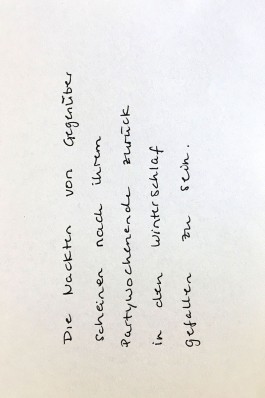 Die Nackten von Gegenüber
scheinen nach ihrem
Partywochenende zurück
in den Winterschlaf
gefallen zu sein.